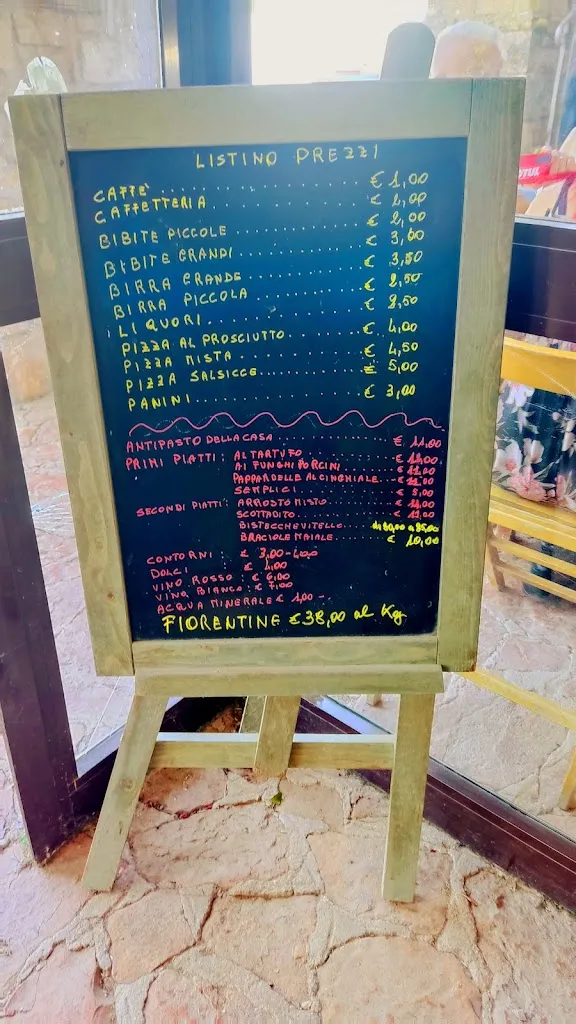 LISTINO PREZZI
CAFFE' € 1,00
CAFFETTERIA € 2,00
BIBITE PICCOLE € 2,00
BIBITE GRANDI € 3,00
BIRRA GRANDE € 3,50
BIRRA PICCOLA € 2,50
LIQUORI € 2,50
PIZZA AL PROSCIUTTO € 4,00
PIZZA MISTA € 4,50
PIZZA SALSICCE € 5,00
PANINI € 3,00
ANTIPASTO DELLA CASA € 11,00
PRIMI PIATTI: AL TARTUFO
AI FUNGHI PORCINI € 11,00
PAPPARDELLE AL CINGHIALE € 11,00
SEMPLICI
SECONDI PIATTI: ARROSTO MISTO € 14,00
SCOTTADITO
BISTECCHE VITELLO
BRACIOLE MAIALE € 10,00
CONTORNI: € 3,00-4,00
DOLCI: € 4,00
VINO ROSSO: € 6,00
VINO BIANCO: € 7,00
ACQUA MINERALE € 1,00
FIORENTINE € 38,00 al Kg